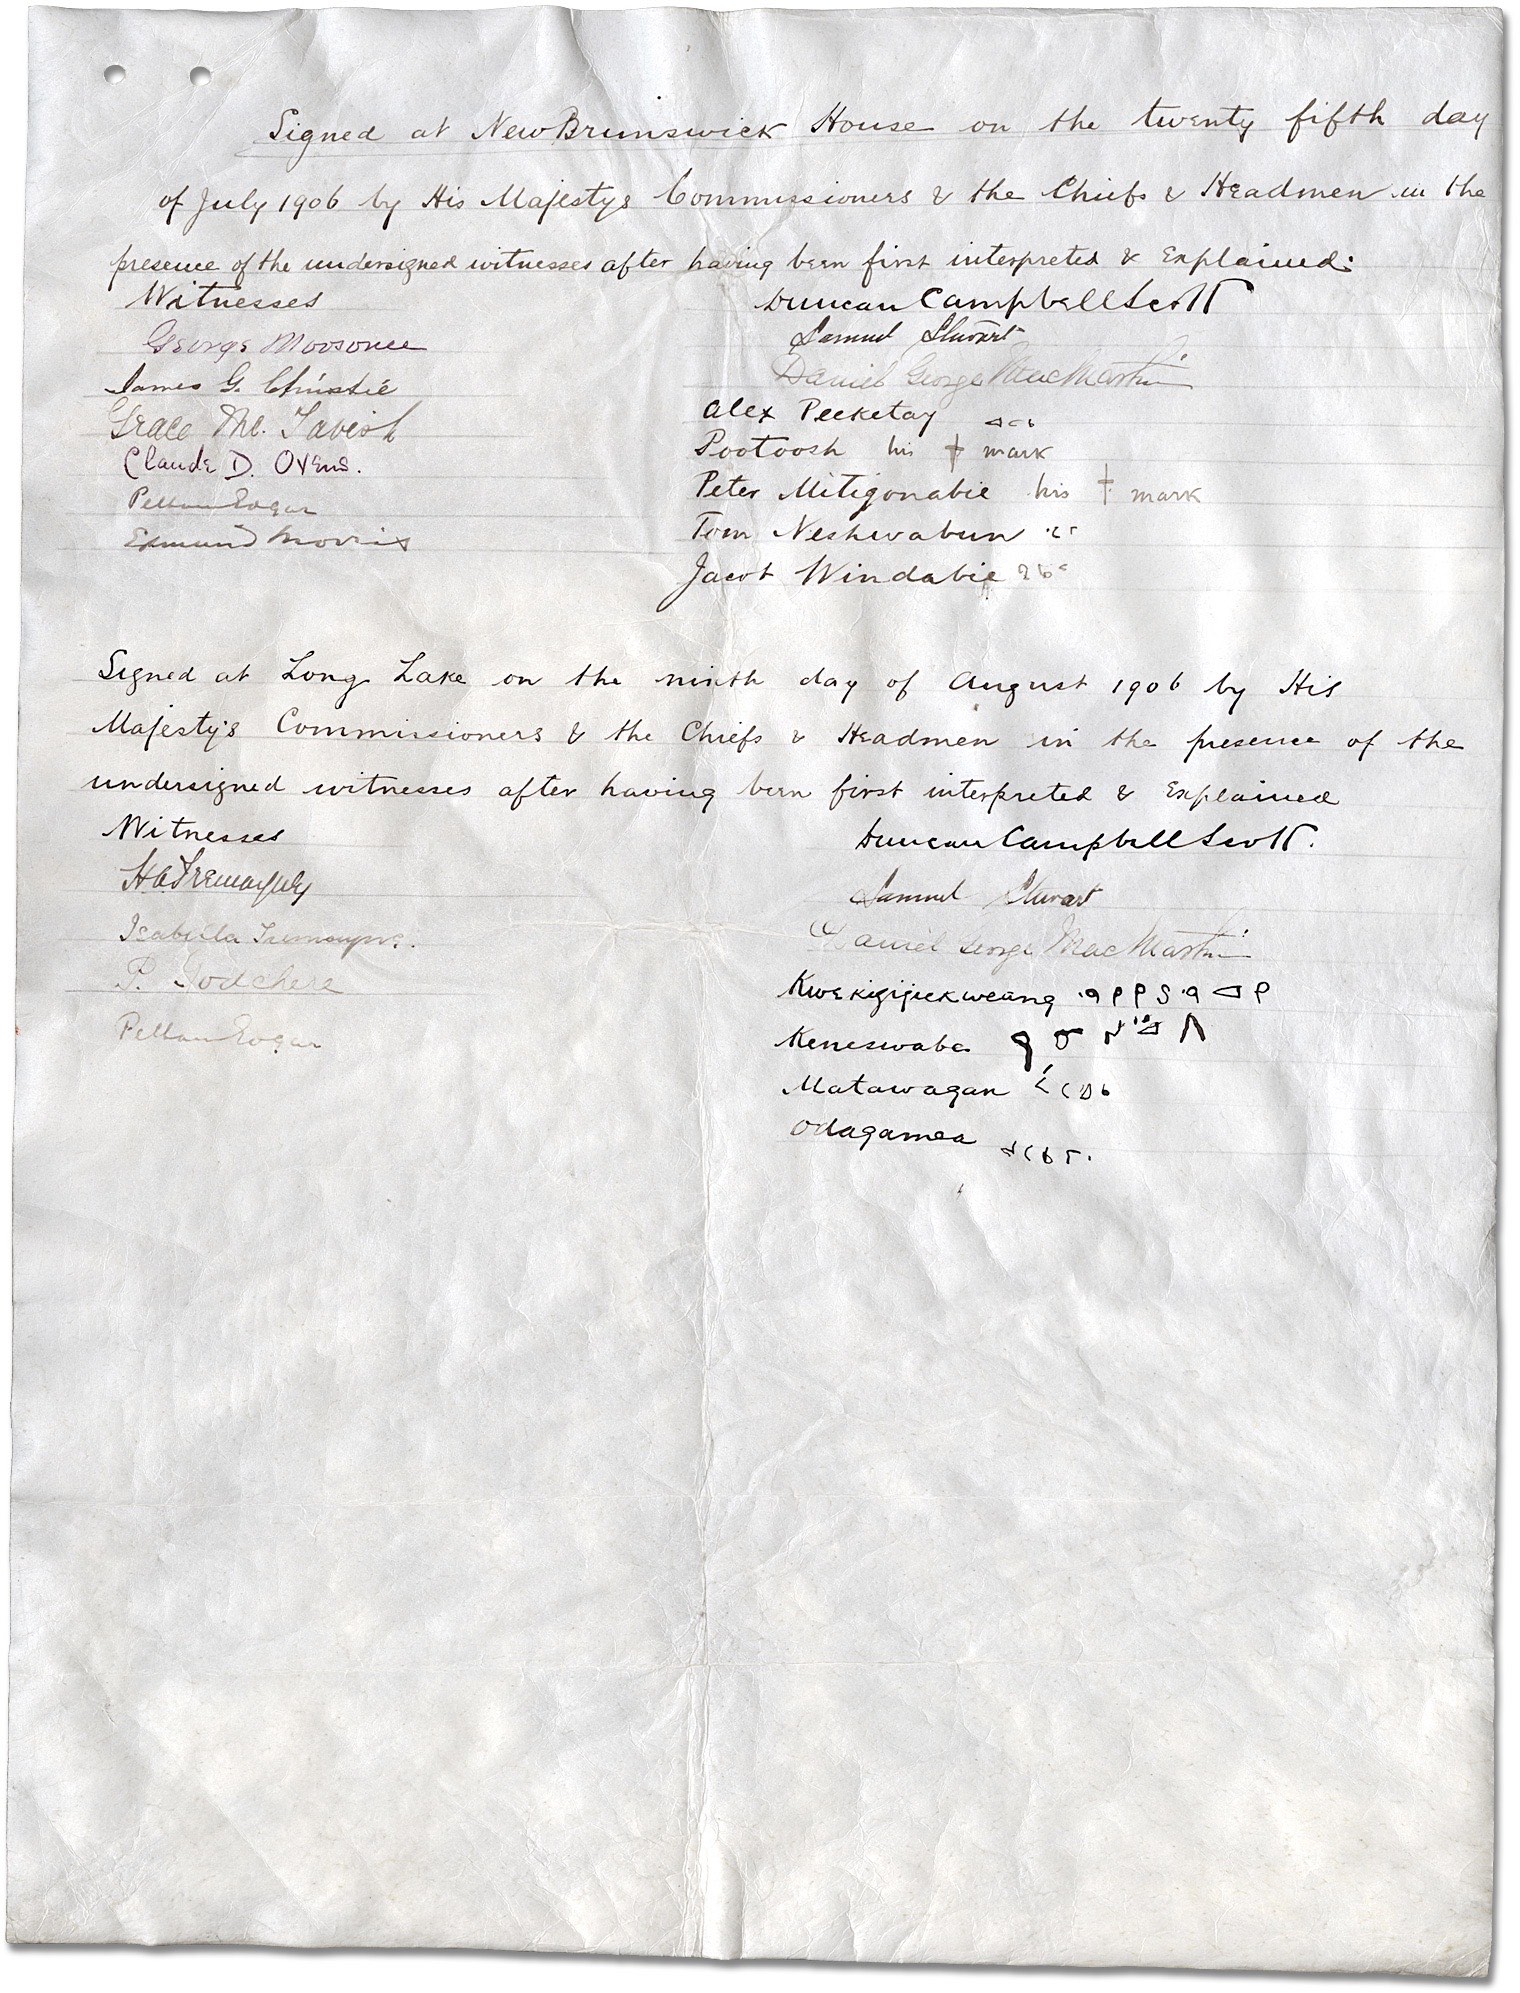 Signed at New Brunswick House on the twenty fifth day
of July 1906 by His Majestys Commissioners & the Chiefs & Headmen in the
presence of the undersigned witnesses after having been first interpreted & explained:
Witnesses
George Moosonee
James G. Christie
Grace Mc. Tavish
Claude D. Ovens.
Pelham Edgar
Edmund Morris
Duncan Campbell Scott
Samuel Stewart
Daniel George MacMartin
Alex Peeketay
Pootoosh his † mark
Peter Mitigonabie his † mark
Tom Neshwabun
Jacob Windabie
Signed at Long Lake on the ninth day of August 1906 by His
Majesty's Commissioners & the Chiefs & Headmen in the presence of the
undersigned witnesses after having been first interpreted & explained
Witnesses
Isabella Tremayne.
P. Godchere
Pelham Edgar
Duncan Campbell Scott.
Samuel Stewart
Daniel George MacMartin
Kwekigijickweang ᑫᑭᑭᔕᑫᐊᑭ
Keneswabe
Matawagan
Odagamea